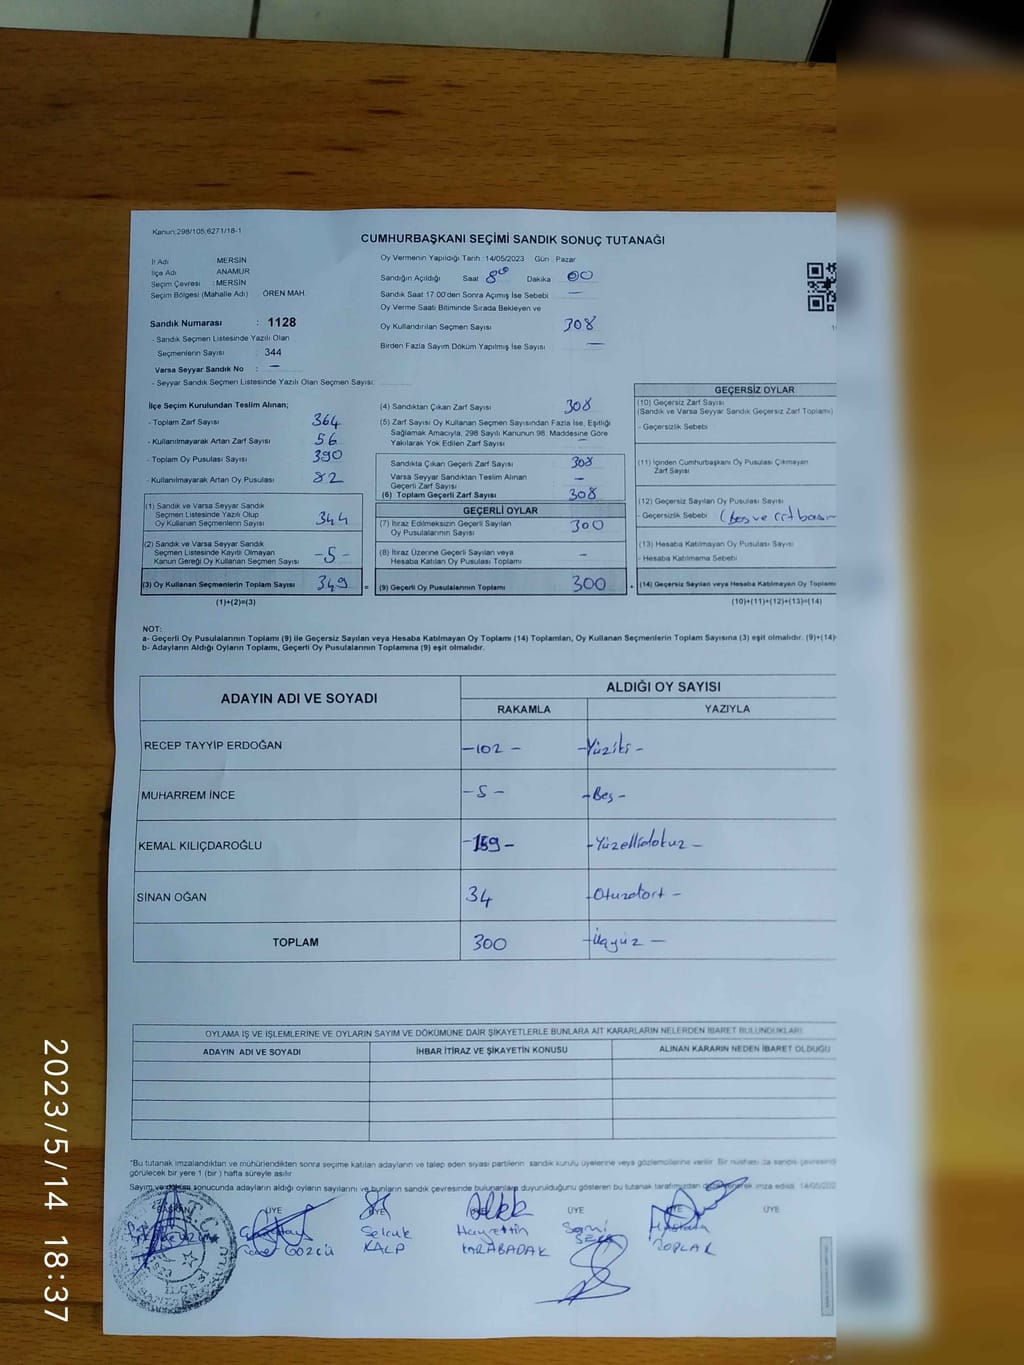 Kanun;298/105;6271/18-1
CUMHURBAŞKANI SEÇİMİ SANDIK SONUÇ TUTANAĞI
İl Adı MERSİN
İlçe Adı ANAMUR
Seçim Çevresi : MERSİN
Seçim Bölgesi (Mahalle Adı) ÖREN MAH.
Sandık Numarası : 1128
- Sandık Seçmen Listesinde Yazılı Olan
Seçmenlerin Sayısı : 344
Varsa Seyyar Sandık No : —
- Seyyar Sandık Seçmen Listesinde Yazılı Olan Seçmen Sayısı:
Oy Vermenin Yapıldığı Tarih : 14/05/2023 Gün : Pazar
Sandığın Açıldığı Saat 8⁰⁰ Dakika 00
Sandık Saat 17.00'den Sonra Açımış İse Sebebi —
Oy Verme Saati Bitiminde Sırada Bekleyen ve
Oy Kullandırılan Seçmen Sayısı 308
Birden Fazla Sayım Döküm Yapılmış İse Sayısı —
İlçe Seçim Kurulundan Teslim Alınan;
- Toplam Zarf Sayısı 364
- Kullanılmayarak Artan Zarf Sayısı 56
- Toplam Oy Pusulası Sayısı 390
- Kullanılmayarak Artan Oy Pusulası 82
(1) Sandık ve Varsa Seyyar Sandık
Seçmen Listesinde Yazılı Olup
Oy Kullanan Seçmenlerin Sayısı 344
(2) Sandık ve Varsa Seyyar Sandık
Seçmen Listesinde Kayıtlı Olmayan
Kanun Gereği Oy Kullanan Seçmen Sayısı -5-
(3) Oy Kullanan Seçmenlerin Toplam Sayısı 349 =
(1)+(2)=(3)
(4) Sandıktan Çıkan Zarf Sayısı 308
(5) Zarf Sayısı Oy Kullanan Seçmen Sayısından Fazla İse, Eşitliği
Sağlamak Amacıyla, 298 Sayılı Kanunun 98. Maddesine Göre
Yakılarak Yok Edilen Zarf Sayısı —
Sandıkta Çıkan Geçerli Zarf Sayısı 308
Varsa Seyyar Sandıktan Teslim Alınan
Geçerli Zarf Sayısı —
(6) Toplam Geçerli Zarf Sayısı 308
GEÇERLİ OYLAR
(7) İtiraz Edilmeksizin Geçerli Sayılan
Oy Pusulalarının Sayısı 300
(8) İtiraz Üzerine Geçerli Sayılan veya
Hesaba Katılan Oy Pusulası Toplamı -
(9) Geçerli Oy Pusulalarının Toplamı 300 +
GEÇERSİZ OYLAR
(10) Geçersiz Zarf Sayısı
(Sandık ve Varsa Seyyar Sandık Geçersiz Zarf Toplamı)
- Geçersizlik Sebebi
(11) İçinden Cumhurbaşkanı Oy Pusulası Çıkmayan
Zarf Sayısı
(12) Geçersiz Sayılan Oy Pusulası Sayısı
- Geçersizlik Sebebi (Boş ve
(13) Hesaba Katılmayan Oy Pusulası Sayısı
- Hesaba Katılmama Sebebi
(14) Geçersiz Sayılan veya Hesaba Katılmayan Oy
(10)+(11)+(12)+(13)=(14)
NOT:
a- Geçerli Oy Pusulalarının Toplamı (9) ile Geçersiz Sayılan veya Hesaba Katılmayan Oy Toplamı (14) Toplamları, Oy Kullanan Seçmenlerin Toplam Sayısına (3) eşit olmalıdır. (9)+(14)
b- Adayların Aldığı Oyların Toplamı, Geçerli Oy Pusulalarının Toplamına (9) eşit olmalıdır.
ADAYIN ADI VE SOYADI ALDIĞI OY SAYISI
RAKAMLA YAZIYLA
RECEP TAYYİP ERDOĞAN -102- -Yüziki-
MUHARREM İNCE -5- -Beş-
KEMAL KILIÇDAROĞLU -159- -Yüzellidokuz-
SİNAN OĞAN 34 -Otuzdört-
TOPLAM 300 -Üçyüz-
OYLAMA İŞ VE İŞLEMLERİNE VE OYLARIN SAYIM VE DÖKÜMÜNE DAİR ŞİKAYETLERLE BUNLARA AİT KARARLARIN NELERDEN İBARET BULUNDUKLARI
ADAYIN ADI VE SOYADI İHBAR İTİRAZ VE ŞİKAYETİN KONUSU ALINAN KARARIN NEDEN İBARET OLDUĞU
"Bu tutanak imzalandıktan ve mühürlendikten sonra seçime katılan adayların ve talep eden siyasi partilerin sandık kurulu üyelerine veya gözlemcilerine verilir. Bir nüshası da sandık çevresinde
görülecek bir yere 1 (bir) hafta süreyle asılır.
Sayım ve döküm sonucunda adayların aldığı oyların sayılarını ve bunların sandık çevresinde bulunanlara duyurulduğunu gösteren bu tutanak tarafımızdan düzenlenerek imza edildi. 14/05/202
BAŞKAN ÜYE ÜYE ÜYE ÜYE ÜYE ÜYE
GÖZCÜ
Selcuk KALP
Hayrettin KARABADAK
Sami
Mustafa TOPLAK
2023/5/14 18:37